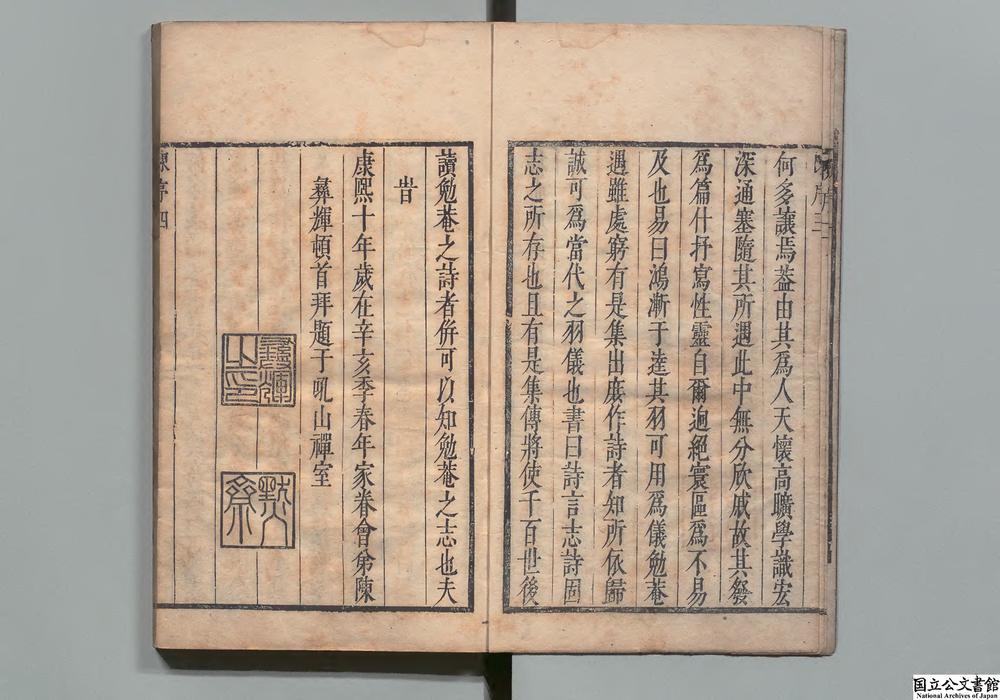 何多讓焉葢由其爲人天懷高曠學識宏
深通塞隨其所遇此中無分欣戚故其發
爲篇什抒寫性靈自爾逈絕寰區爲不易
及也易曰鴻漸于逵其羽可用爲儀勉菴
遇雖處窮有是集出庻作詩者知所依歸
誠可爲當代之羽儀也書曰詩言志詩固
志之所存也且有是集傳將使千百世後
讀勉菴之詩者併可以知勉菴之志也夫
旹
康熙十年歲在辛亥季春年家眷會弟陳
彝輝頓首拜題于吼山禪室
彝輝
之印
陳序四
国立公文書館
National Archives of Japan